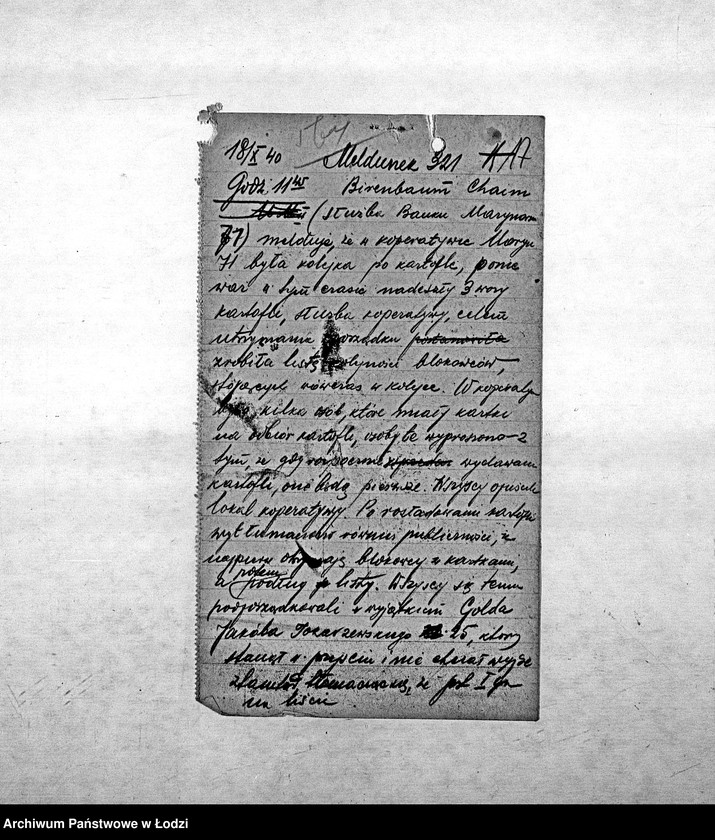 564
18/X 40 Meldunek 321 KA7
Godz. 11 45 Birenbaum Chaim
(służba Banku Marynars
71) melduje, że w koperatywie Marys
71 była kolejka po kartofle, ponie
waż w tym czasie nadeszły 3 wory
kartofli, służba koperatywy, celem
utrzymania porządku postanowiła
zrobiła listę blokowców,
stojących wówczas w kolejce. W koperatyw
było kilka osób, które miały kartki
na odbiór kartofli, osoby te wyproszono z
tym, że gdy rozpocznie wydawani
kartofli, one będą pierwsze. Wszyscy opuścili
lokal koperatywy. Po kartofli
wytłumaczono również publiczności, że
najpierw otrzymają blokowcy z kartkami,
a potem podług listy. Wszyscy się temu
podporządkowali z wyjątkiem Golda
Jakóba Tokarzewskiego 25, który
stanął w przejściu i nie chciał wyjść
że
na liście
Archiwum Państwowe w Łodzi